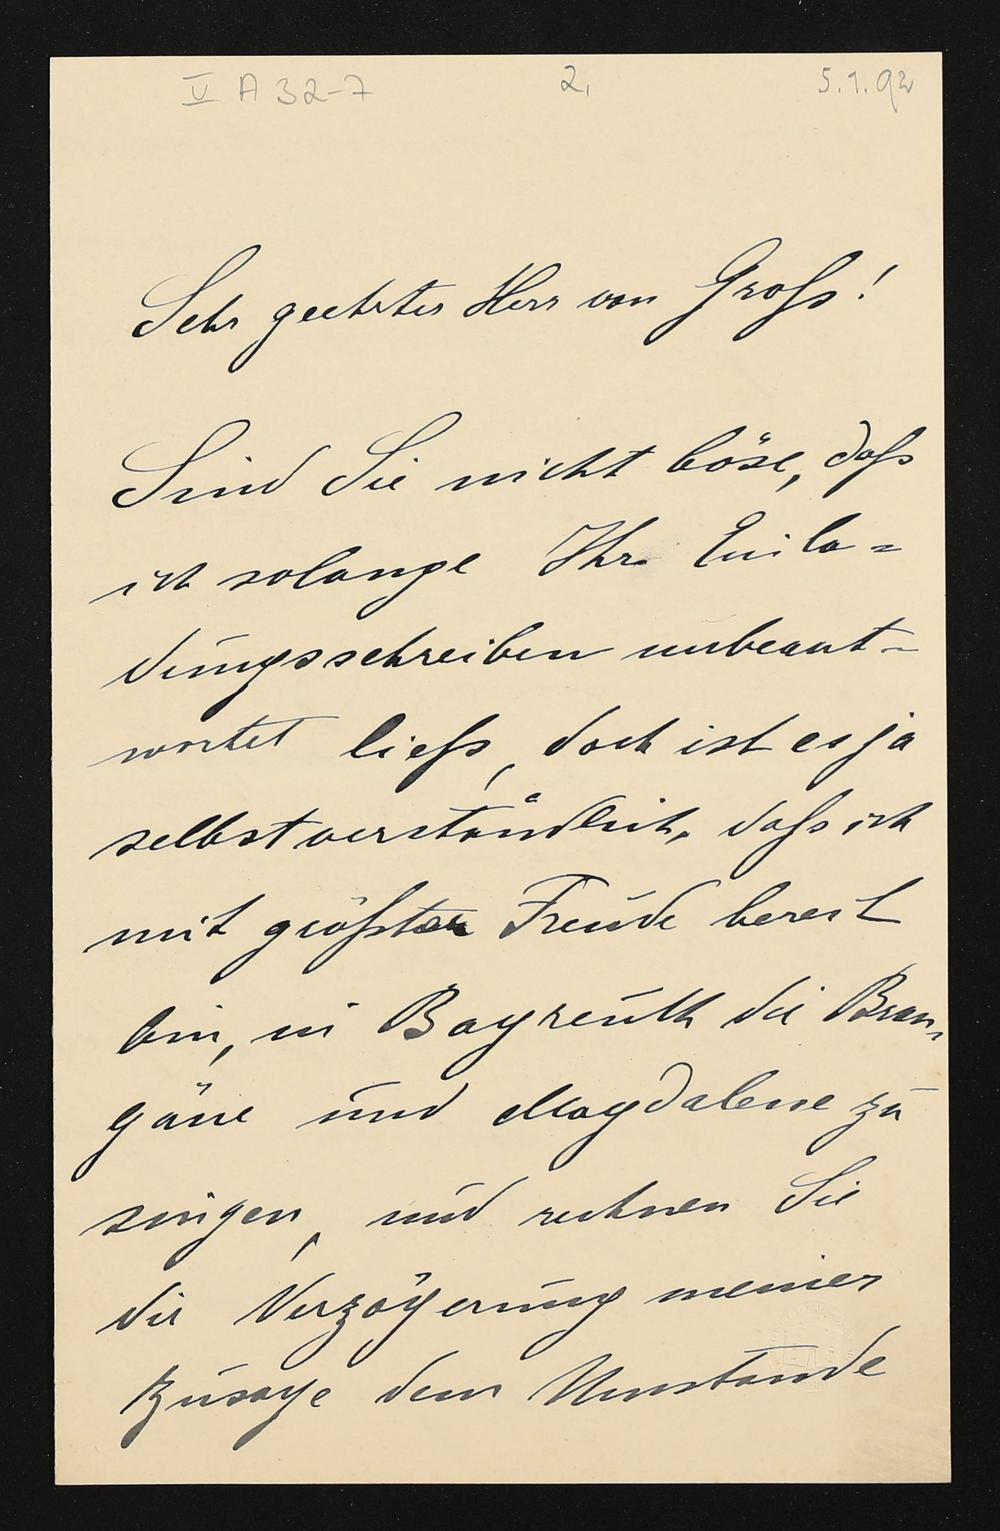 V A 32-7 2, 5.1.92
Sehr geehrter Herr von Groß!
Sind Sie nicht böse, daß
ich solange Ihr Einla=
dungsschreiben unbeant=
wortet ließ, doch ist es ja
selbstverständlich, daß ich
mit größter Freude bereit
bin, in Bayreuth die Bran,
gäne und Magdalene zu
singen, und rechnen Sie
die Verzögerung meiner
Zusage dem Umstande